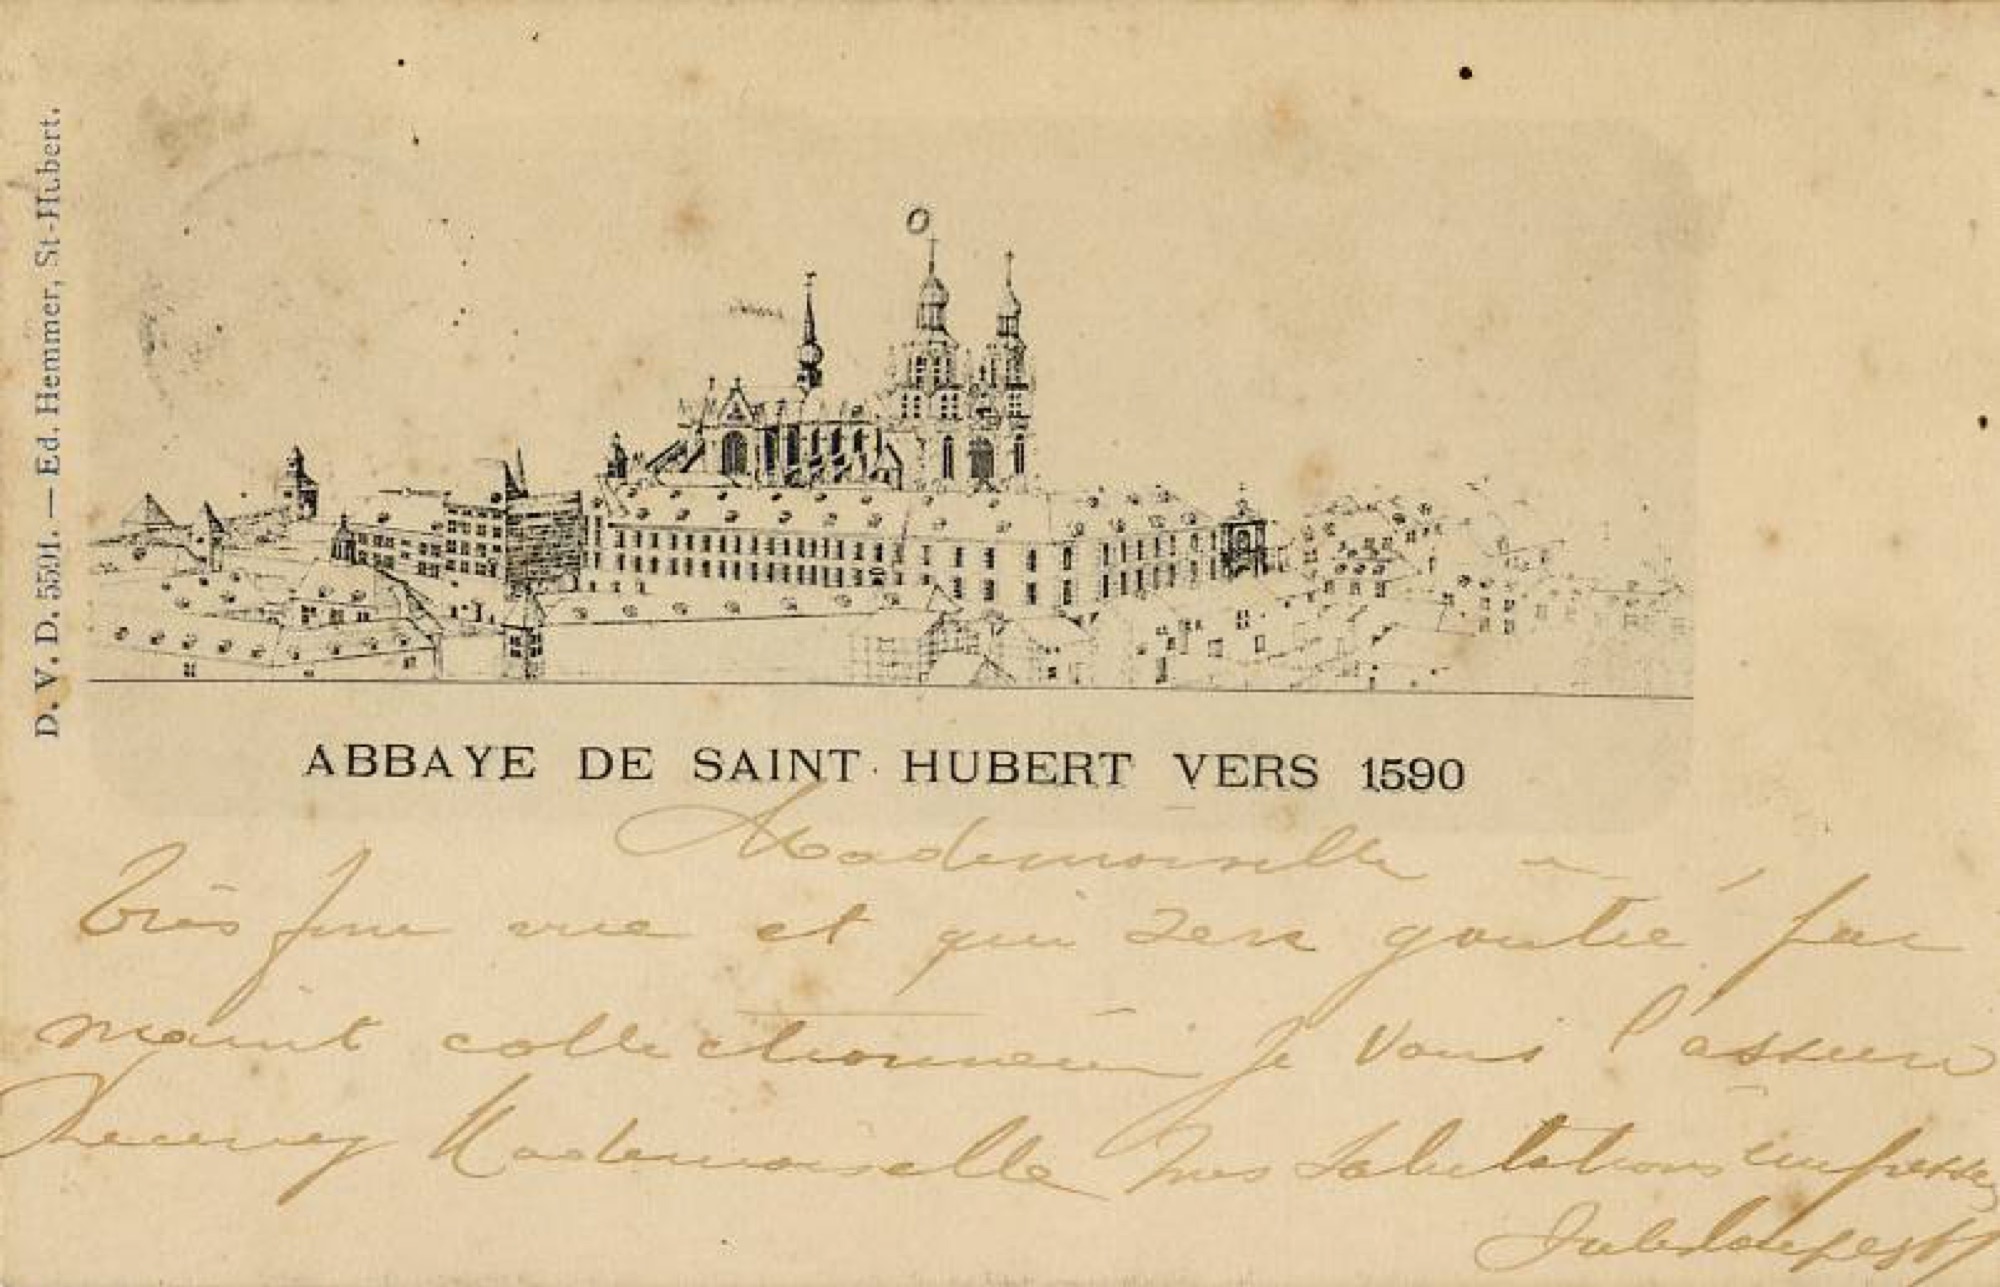 D. V. D. 5591. — Ed. Hemmer, St-Hubert.
ABBAYE DE SAINT HUBERT VERS 1590
Mademoiselle
Très fine vue et qui sera goutée par
maint collectionneur je vous l'assure
Recevez Mademoiselle mes salutations